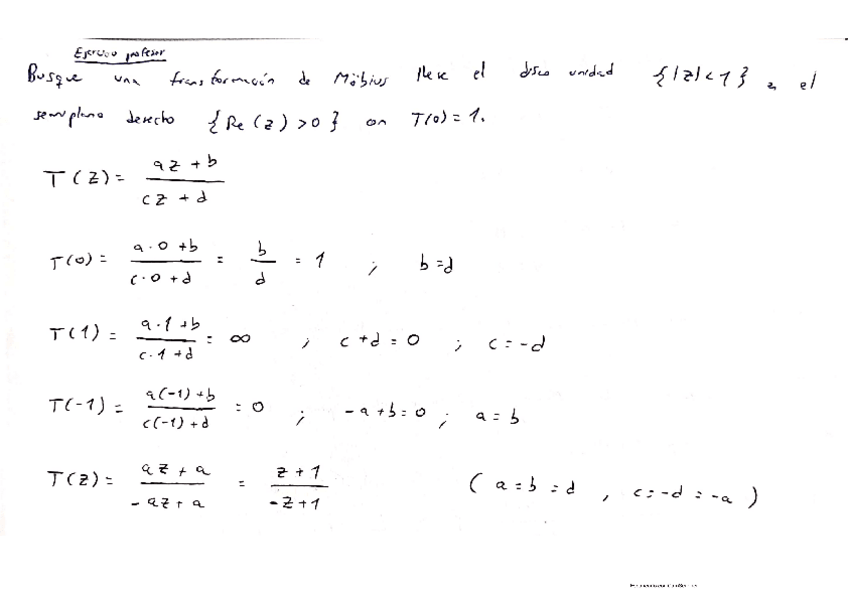 Ejercicio profesor
Busque una transformación de Möbius lleve el disco unidad {|z|<1} en el
semiplano derecho {Re(z)>0} con T(0)=1.
T(z) = (az+b)/(cz+d)
T(0) = (a·0+b)/(c·0+d) = b/d = 1 ; b=d
T(1) = (a·1+b)/(c·1+d) = ∞ ; c+d=0 ; c=-d
T(-1) = (a(-1)+b)/(c(-1)+d) = 0 ; -a+b=0 ; a=b
T(z) = (az+a)/(-az+a) = (z+1)/(-z+1) (a=b=d, c=-d=-a)